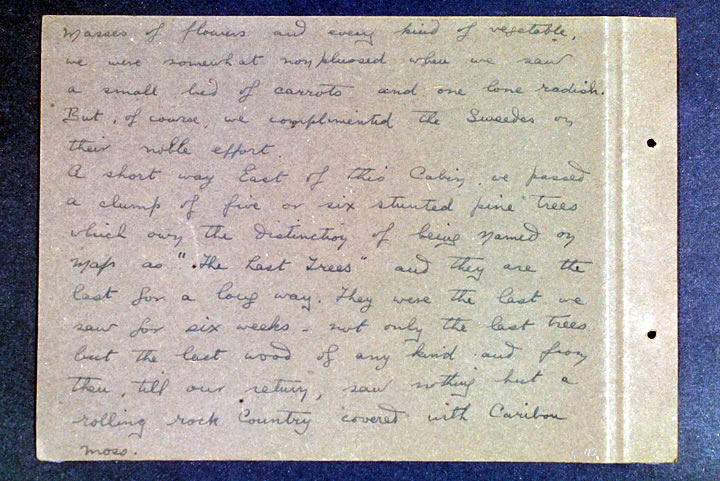 masses of flowers and every kind of vegetable,
we were somewhat nonplussed when we saw
a small bed of carrots and one lone radish.
But, of course, we complimented the Sweedes on
their noble effort.
A short way East of this Cabin, we passed
a clump of five or six stunted pine trees
which own the distinction of being named on
maps as "The Last Trees" and they are the
last for a long way. They were the last we
saw for six weeks - not only the last trees
but the last wood of any kind and from
then, till our return, saw nothing but a
rolling rock Country covered with Caribou
moss.